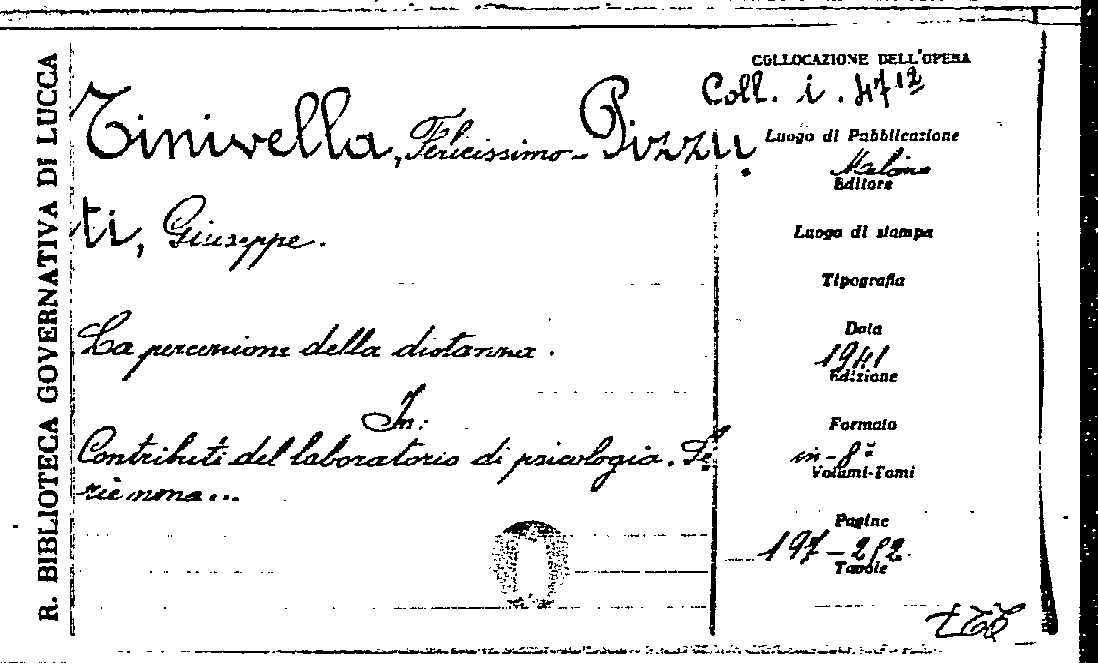 R. BIBLIOTECA GOVERNATIVA DI LUCCA
COLLOCAZIONE DELL'OPERA
Coll. i. 47¹²
Tinivella, Felicissimo - Pizzu
ti, Giuseppe.
La percezione della distanza.
In:
Contributi del laboratorio di psicologia. Se
rie nona...
Luogo di Pubblicazione
Milano
Editore
Luogo di stampa
Tipografia
Data
1941
Edizione
Formato
in-8°
Volumi-Tomi
Pagine
197-252
Tavole